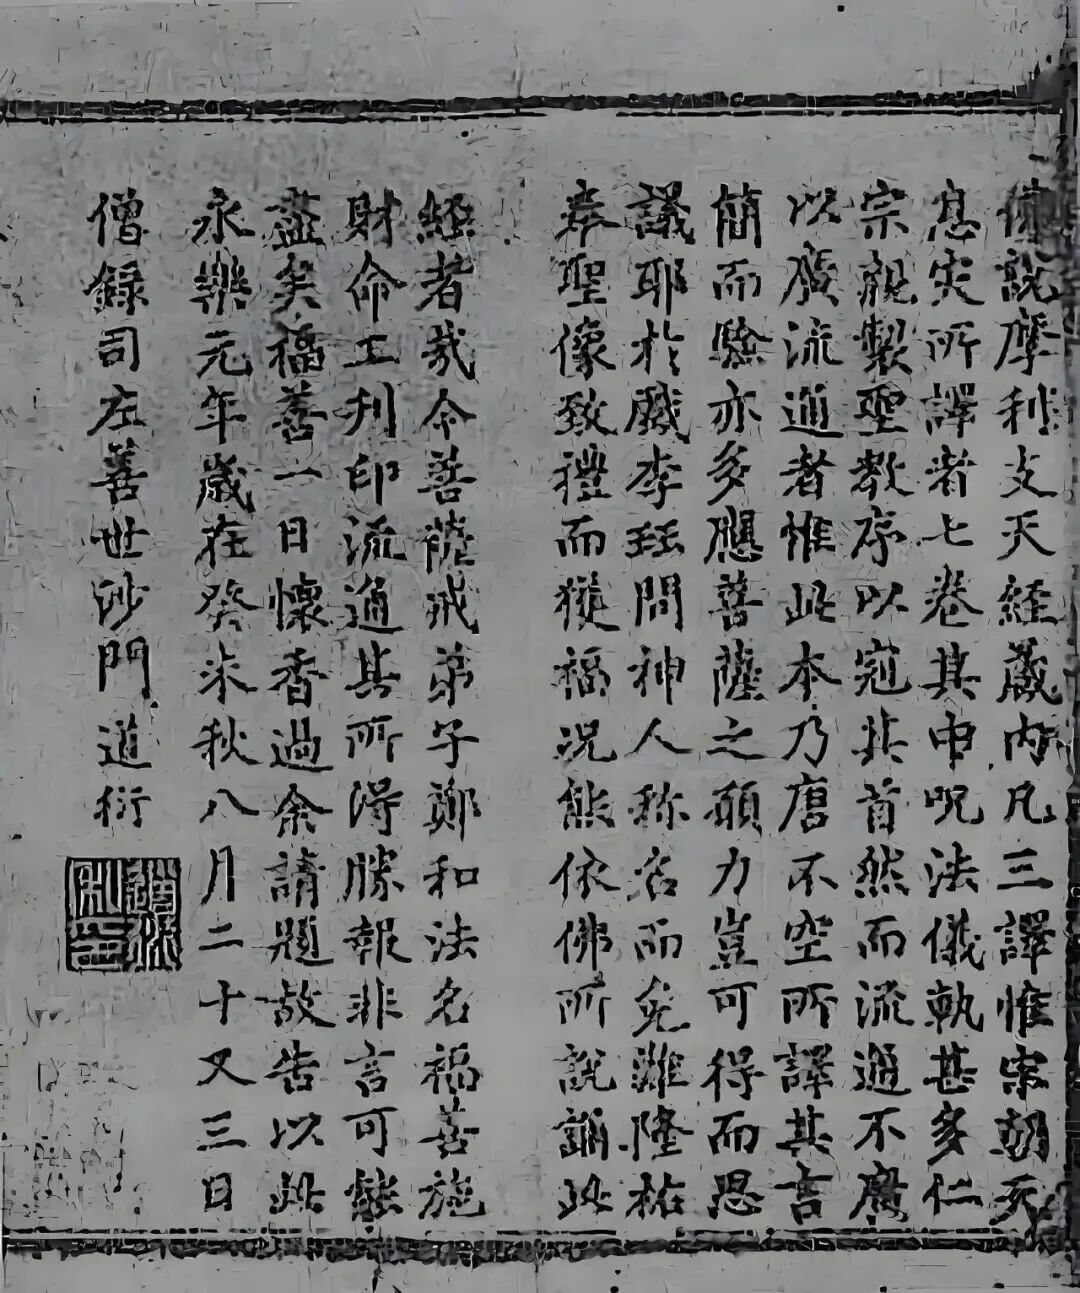 佛說摩利支天經藏内凡三譯惟宋朝天
息災所譯者七卷其中呪法儀軌甚多仁
宗親製聖教序以冠其首然而流通不廣
以廣流通者惟此本乃唐不空所譯其言
簡而驗亦多應菩薩之願力豈可得而思
議耶於戲李珏問神人称名而免難隆祐
奉聖像致禮而獲福況能依佛所說誦此
經者哉今菩薩戒弟子鄭和法名福善施
財命工刊印流通其所得勝報非言可能
盡矣福善一日懷香過余請題故告以此
永樂元年歲在癸未秋八月二十又三日
僧錄司左善世沙門道衍